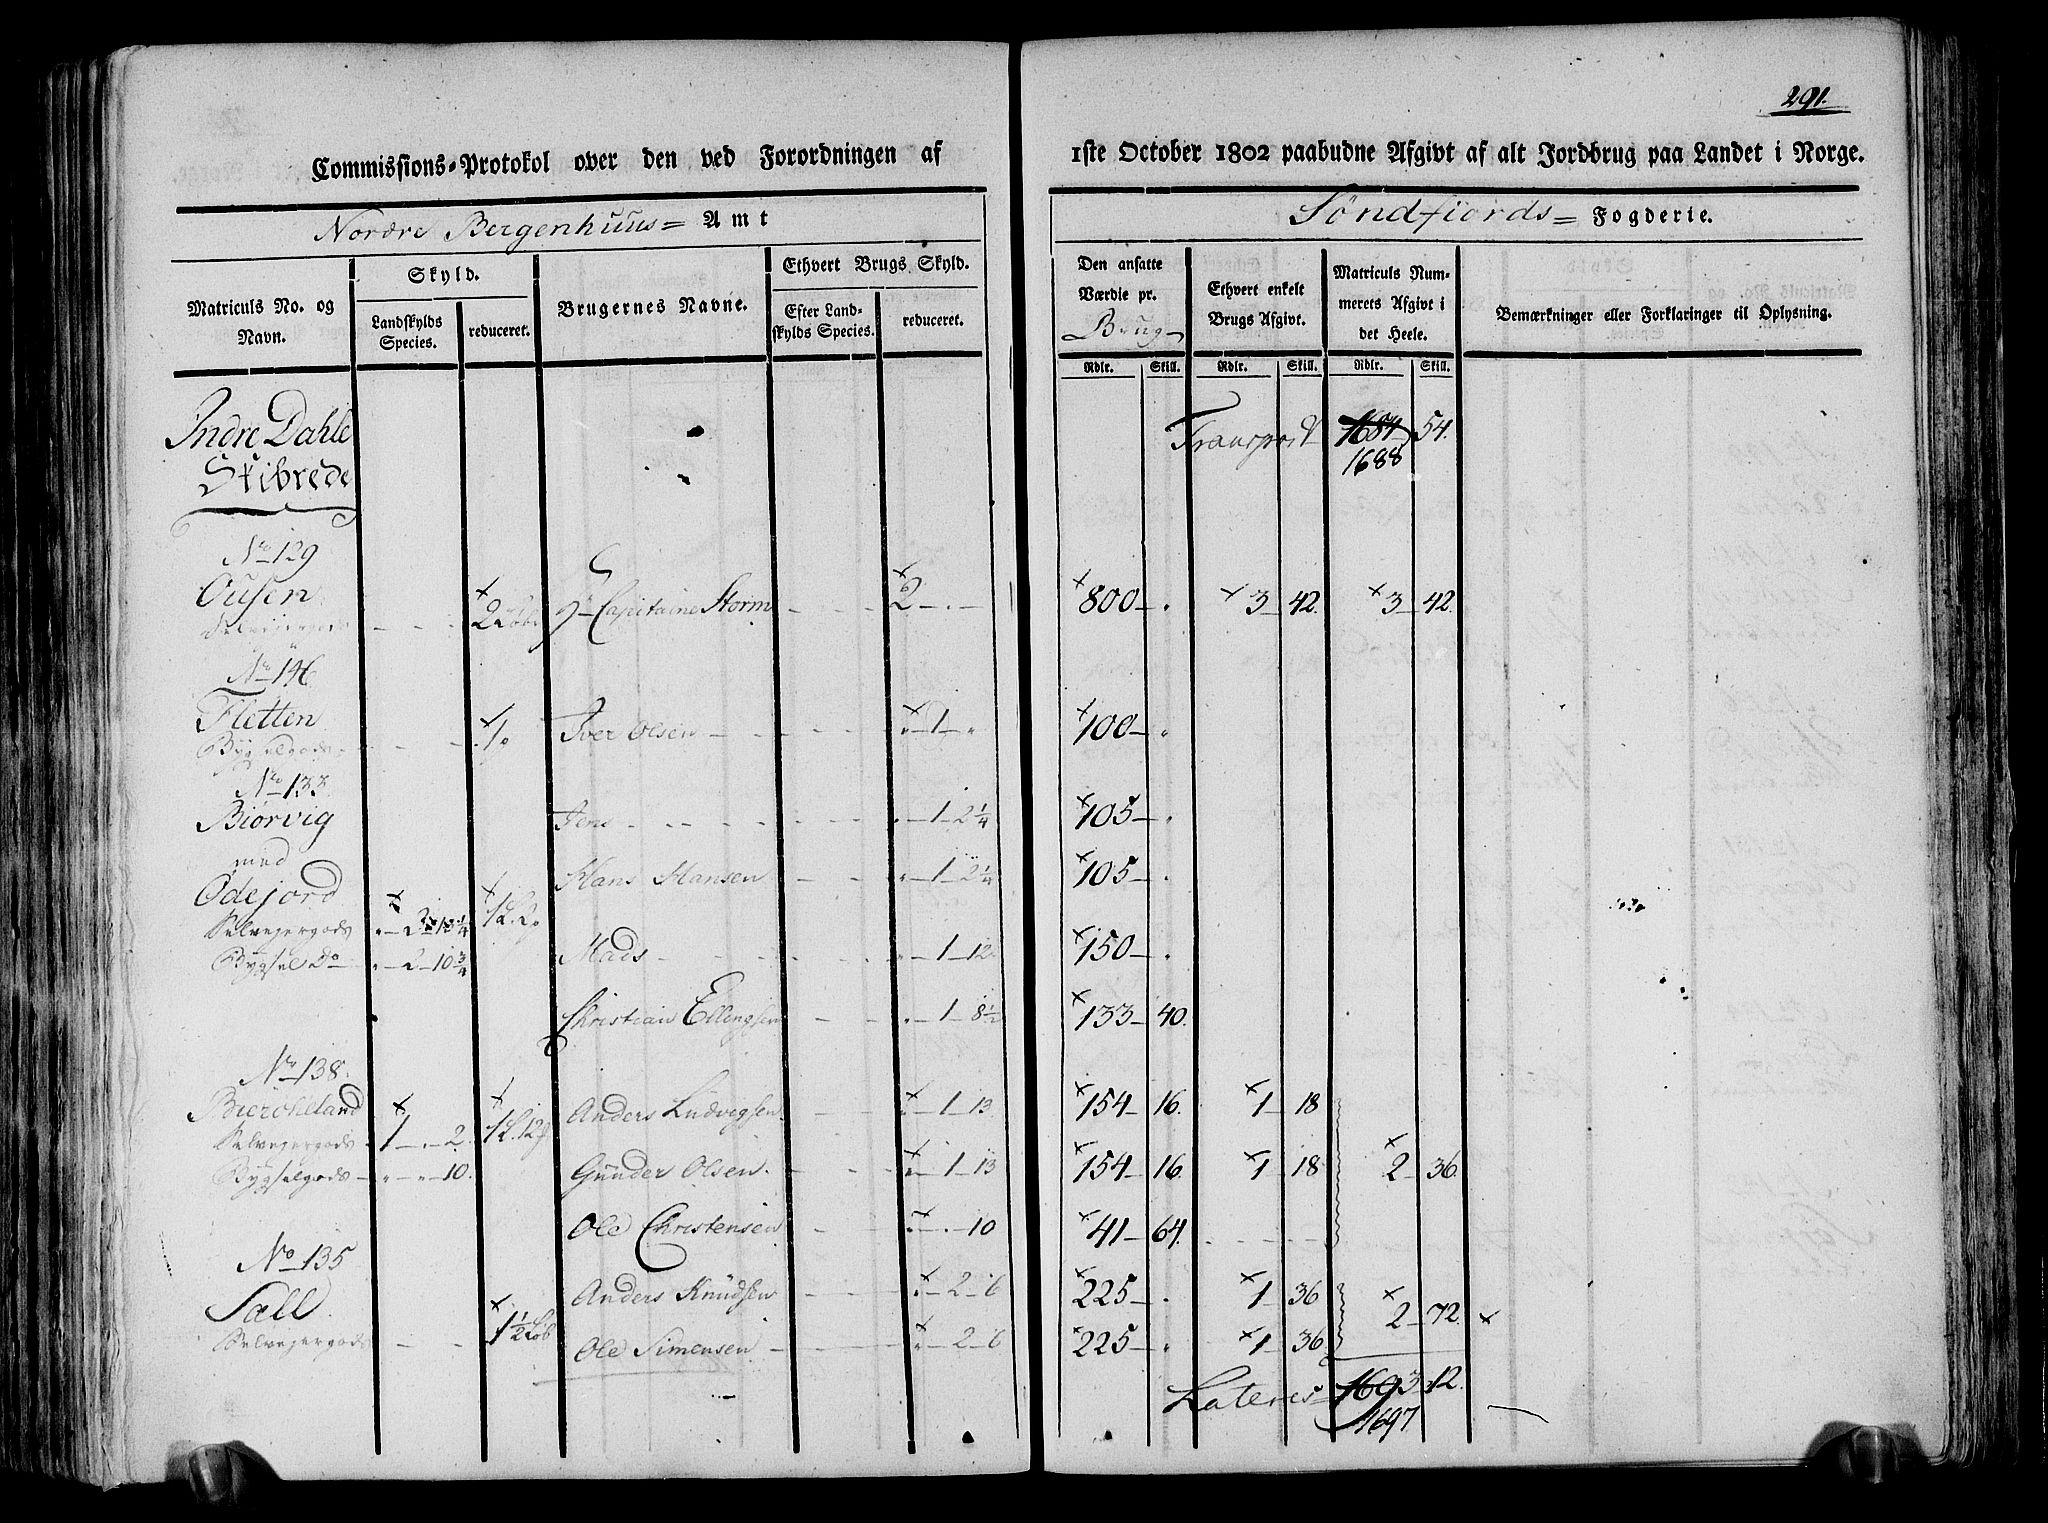 291.
Commissions-Protokol over den ved Forordningen af 1ste October 1802 paabudne Afgivt af alt Jordbrug paa Landet i Norge.
Nordre Bergenhuus= Amt
Søndfiords= Fogderie.
Matriculs No. og Navn.
Skyld.
Landskylds Species.
reduceret.
Brugernes Navne.
Ethvert Brugs Skyld.
Efter Landskylds Species.
reduceret.
Den ansatte Værdie pr. Brug
Ethvert enkelt Brugs Afgivt.
Matriculs Nummerets Afgivt i det Heele.
Bemærkninger eller Forklaringer til Oplysning.
Rdlr. Skill. Rdlr. Skill. Rdlr. Skill.
Indre Dahle Transport 1684 54.
Skibrede 1688
No 129
Ousen 2 Løb Hr Capitaine Storm 2 800 3 42. 3 42.
No 146
Fletten 1 Iver Olsen 1 100
Bygselgods
No 133
Biørvig Jens 1 2 1/4 105
med
Ødejord Hans Hansen 1 2 1/4 105
Selvejergods 13 1/4
Bygsel Do 2 10 3/4 Mads 1 12 150
Christian Ellingsen 1 8 1/2 133 40.
No 138.
Anders Ludvigsen 1 13 154 16. 1 18
Selvejergods 1 2.
Bygselgods 10. Gunder Olsen 1 13 154 16. 1 18 2 36.
Ole Christensen 10 41 64.
No 135
Sæll Anders Knudsen 2 6 225 1 36 2 72.
Selvejergods 1 1/2 Løb Ole Simensen 2 6 225 1 36
Lateres 1693 12.
1697